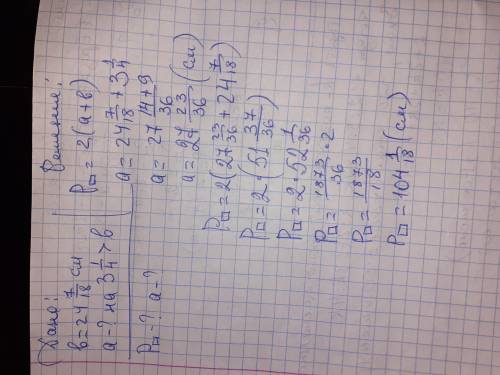 Дано:
b = 24 7/18 см
a = ? на 3 1/4 > b
P□ = ? a = ?
Решение:
P□ = 2(a+b)
a = 24 7/18 + 3 1/4
a = 27 14+9/36
a = 27 23/36 (см)
P□ = 2(27 23/36 + 24 7/18)
P□ = 2·(51 37/36)
P□ = 2·52 1/36
P□ = 1873/36 · 2
P□ = 1873/18
P□ = 104 1/18 (см)